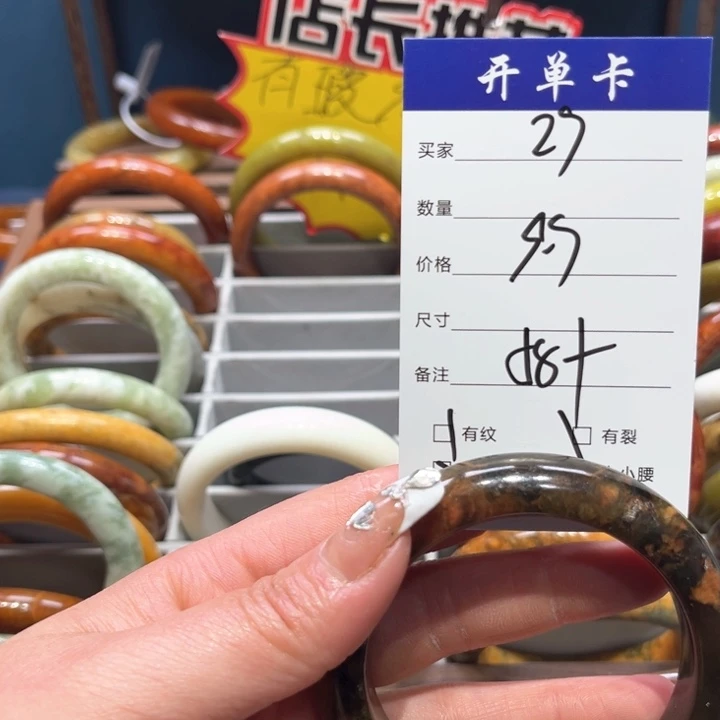 店长推荐
有
开单卡
买家 29
数量
价格 99
尺寸
备注 58+
有纹 有裂
小腰